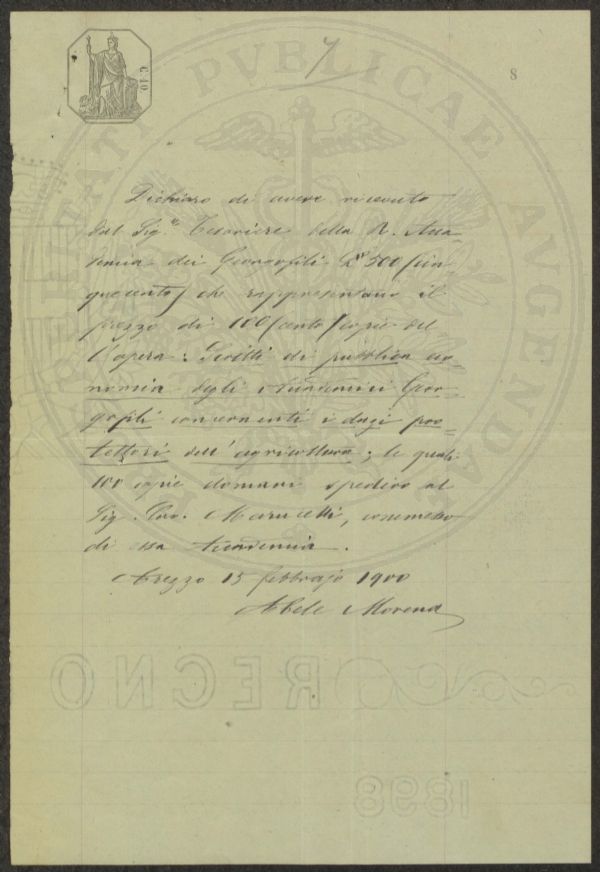 7
8
C. 10
PVBLICAE
AVGENDAE
Dichiaro di avere ricevuto
dal Sig.re Tesoriere della R. Acca-
demia dei Georgofili L.re 500 (cin
quecento) che rappresentano il
prezzo di 100 (cento) copie del
l'opera: Scritti di pubblica eco-
nomia degli Accademici Geor-
gofili concernenti i dazi pro-
tettori dell'agricoltura; le quali
100 copie domani spedirò al
Sig. Cav. Marucelli, commesso
di essa Accademia.
Arezzo 15 febbrajo 1900
Abele Morena
REGNO
1898